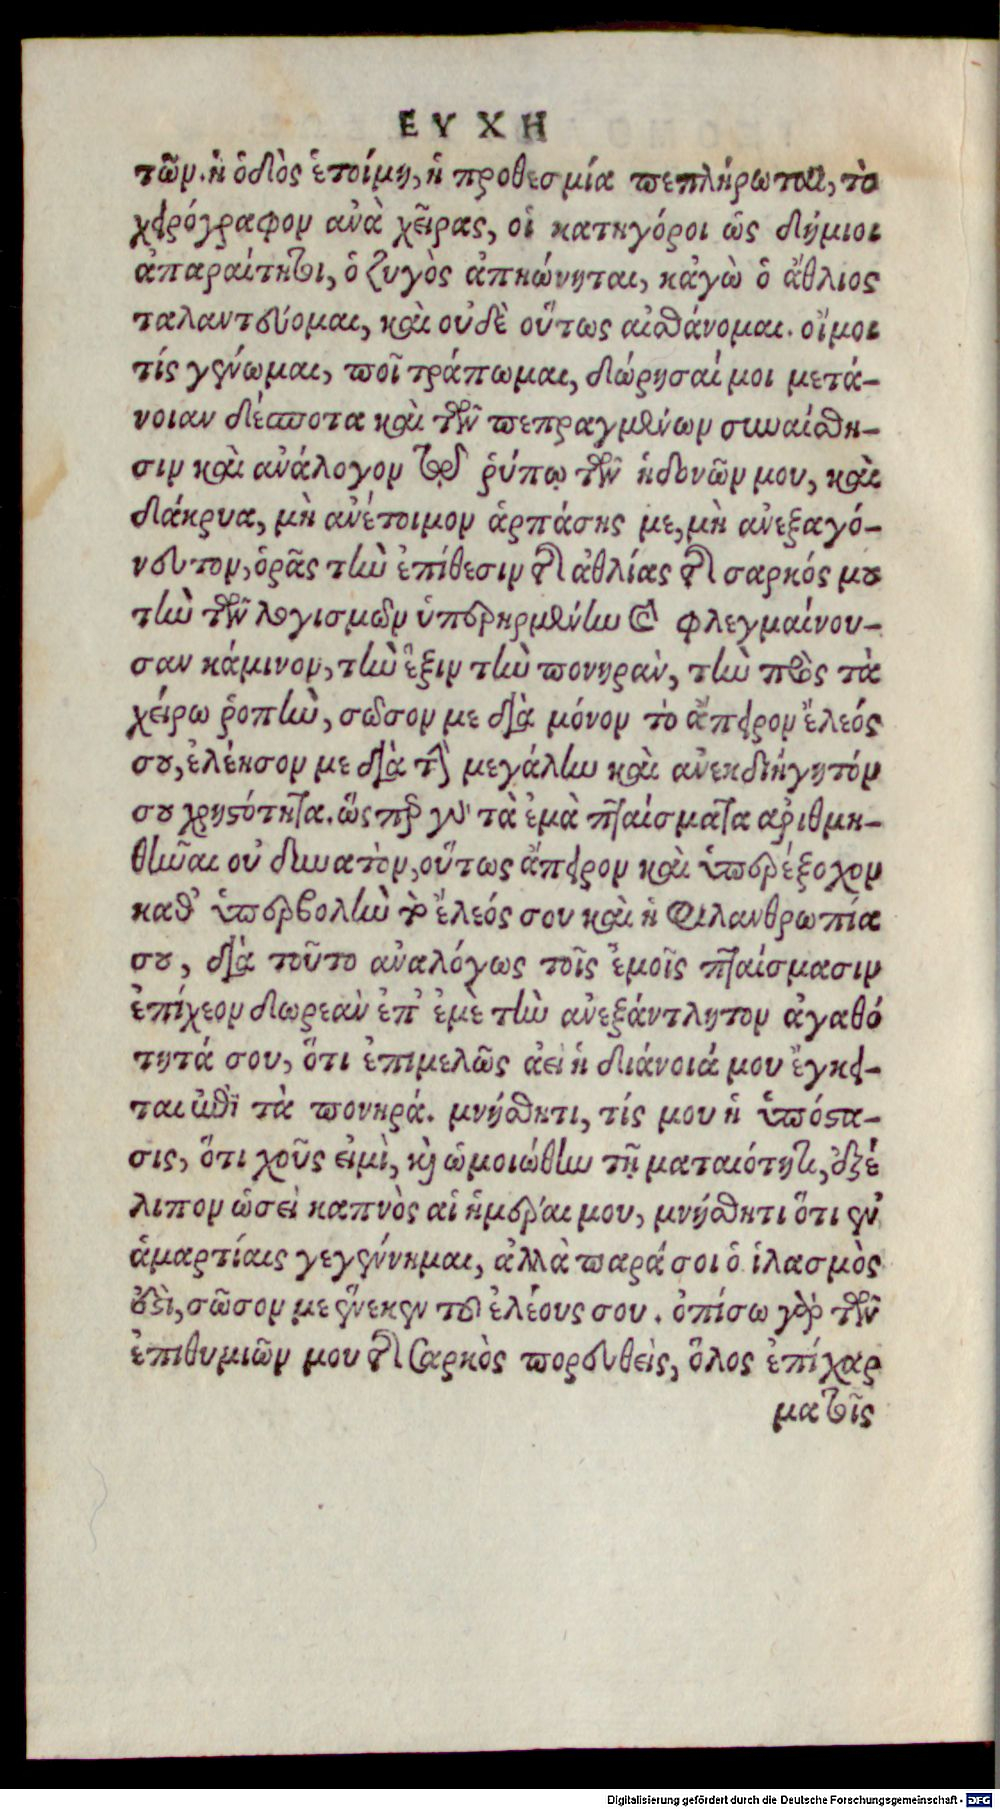 ΕΥΧΗ
τῶν. ἡ ὁδὸς ἑτοίμη, ἡ προθεσμία πεπλήρωται, τὸ
χειρόγραφον ἀνὰ χεῖρας, οἱ κατηγόροι ὡς δήμιοι
ἀπαραίτητοι, ὁ ζυγὸς ἀπῃώρηται, κἀγὼ ὁ ἄθλιος
ταλαντεύομαι, καὶ οὐδὲ οὕτως αἰσθάνομαι. οἴμοι
τίς γένωμαι, ποῖ τράπωμαι, δώρησαί μοι μετά-
νοιαν δέσποτα καὶ τῶν πεπραγμένων συναίσθη-
σιν καὶ ἀνάλογον τῷ ῥύπῳ τῶν ἡδονῶν μου, καὶ
δάκρυα, μὴ ἀνέτοιμον ἁρπάσῃς με, μὴ ἀνεξαγό-
ρευτον, ὁρᾷς τὴν ἐπίθεσιν τῆς ἀθλίας τῆς σαρκός μου
τὴν τῶν λογισμῶν ὑπερηρμένην καὶ φλεγμαίνου-
σαν κάμινον, τὴν ἕξιν τὴν πονηρὰν, τὴν πρὸς τὰ
χείρω ῥοπὴν, σῶσον με διὰ μόνον τὸ ἄπειρον ἔλεός
σου, ἐλέησον με διὰ τὴν μεγάλην καὶ ἀνεκδιήγητόν
σου χρηστότητα. ὥσπερ γὰρ τὰ ἐμὰ πταίσματα ἀριθμη-
θῆναι οὐ δυνατὸν, οὕτως ἄπειρον καὶ ὑπερέξοχον
καθ' ὑπερβολὴν τὸ ἔλεός σου καὶ ἡ φιλανθρωπία
σου, διὰ τοῦτο ἀναλόγως τοῖς ἐμοῖς πταίσμασιν
ἐπίχεον δωρεὰν ἐπ' ἐμὲ τὴν ἀνεξάντλητον ἀγαθό
τητά σου, ὅτι ἐπιμελῶς ἀεὶ ἡ διάνοιά μου ἔγκει-
ται ἐπὶ τὰ πονηρά. μνήσθητι, τίς μου ἡ ὑπόστα-
σις, ὅτι χοῦς εἰμὶ, καὶ ὡμοιώθην τῇ ματαιότητι, ἐξέ
λιπον ὡσεὶ καπνὸς αἱ ἡμέραι μου, μνήσθητι ὅτι ἐν
ἁμαρτίαις γεγέννημαι, ἀλλὰ παρά σοι ὁ ἱλασμὸς
ἐστὶ, σῶσον με ἕνεκεν τοῦ ἐλέους σου. ὀπίσω γὰρ τῶν
ἐπιθυμιῶν μου τῆς σαρκὸς πορευθεὶς, ὅλος ἐπίχαρ
μα τοῖς
Digitalisierung gefördert durch die Deutsche Forschungsgemeinschaft - DFG